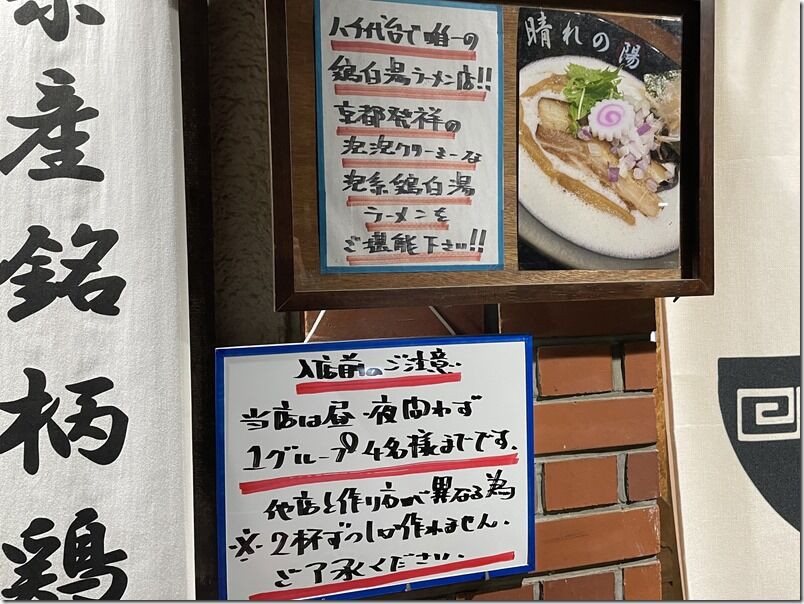 産
銘
柄
鶏
八千代台で唯一の
鶏白湯ラーメン店!!
京都発祥の
泡泡クリーミーな
泡系鶏白湯
ラーメンを
ご堪能下さい!!
晴れの陽
入店前のご注意.
当店は昼・夜問わず
1グループ4名様までです.
他店と作り方が異なる為
※2杯ずつしか作れません.
ご了承ください.